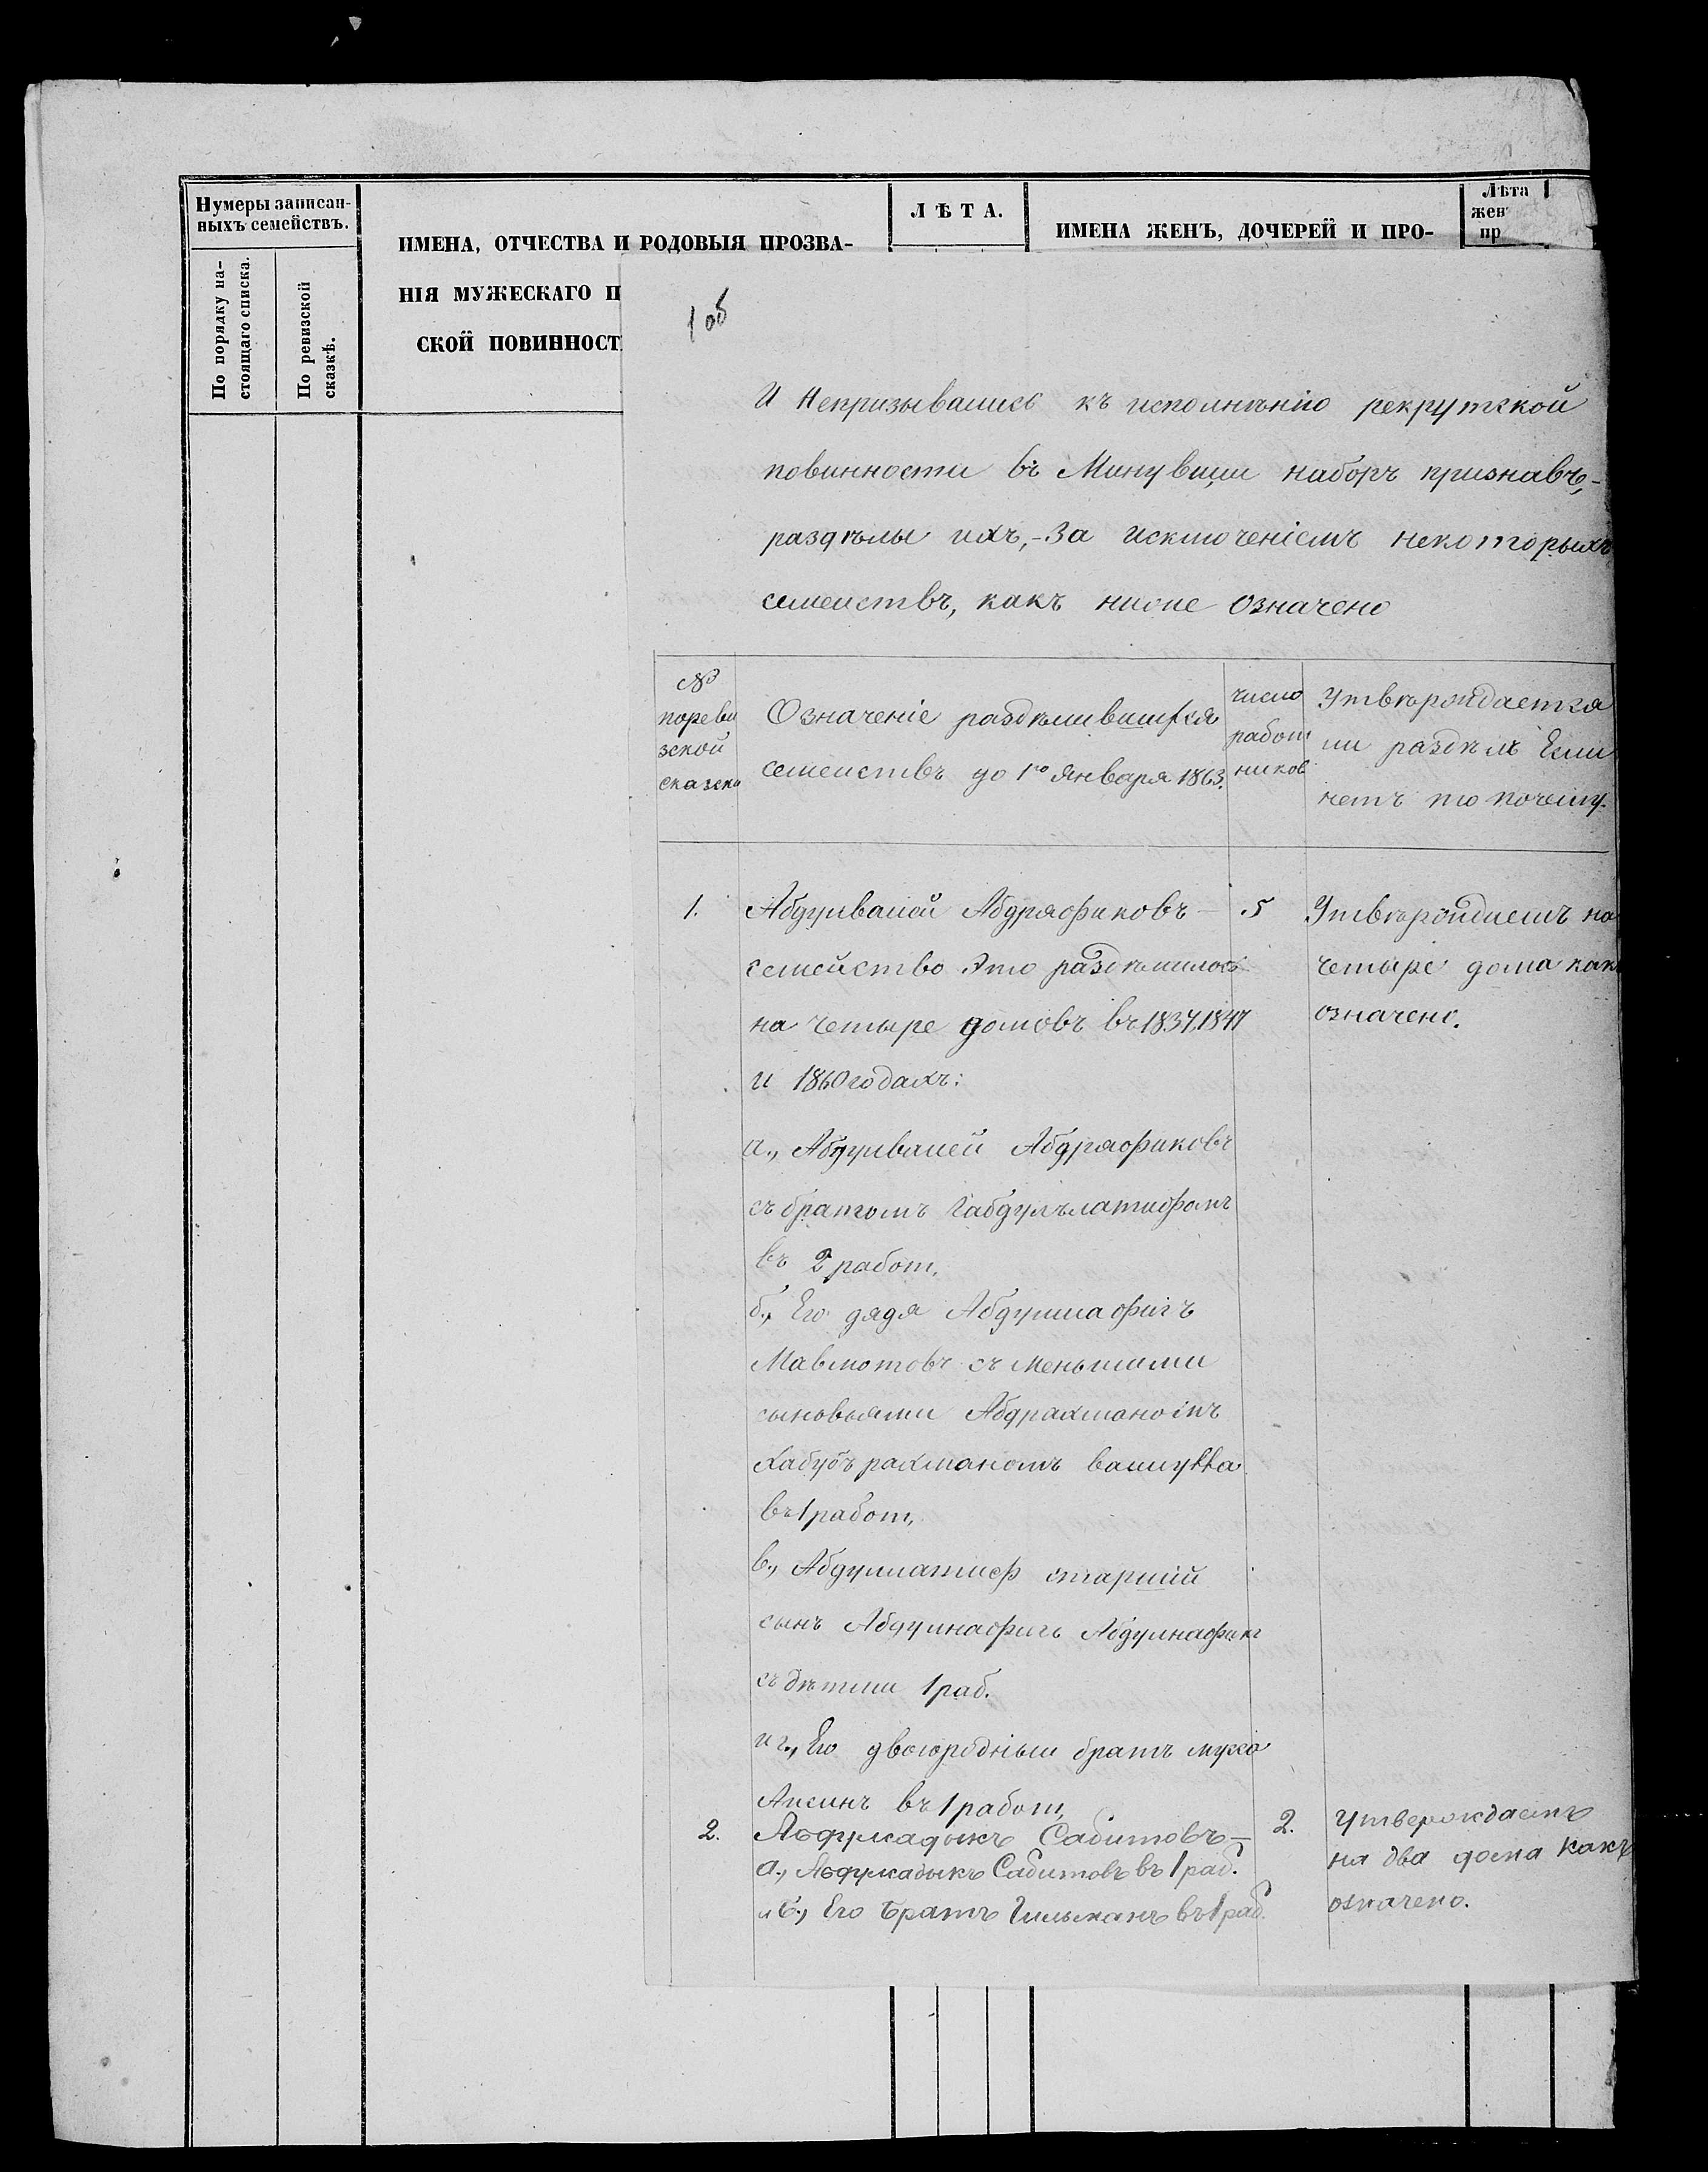 Нумеры записан-
ныхъ семействъ.
По порядку на-
стоящаго списка.
По ревизской
сказкѣ.
ИМЕНА, ОТЧЕСТВА И РОДОВЫЯ ПРОЗВА-
НІЯ МУЖЕСКАГО П
СКОЙ ПОВИННОСТ
ЛѢТА.
ИМЕНА ЖЕНЪ, ДОЧЕРЕЙ И ПРО-
Лѣта
жен
пр
1 об
И Непризывались къ исполнѣнію рекрутской
повинности въ Минувши наборъ признавъ,-
раздѣлы ихъ,-За исключеніемъ некоторыхъ
семействъ, какъ ниже Означено
№
пореви
зской
сказки
Означеніе раздѣлившихся
семействъ до 1го Января 1863.
число
работ
никовъ
Утвѣрждается
ли раздѣлъ Если
нетъ то почему.
1.
Абдулвалей Абдряфиковъ –
семейство Это раздѣлилось
на четыре домовъ въ 1837, 1847
и 1860 годахъ:
а., Абдулвалей Абдряфиковъ
съ братомъ Габдулълатифомъ
въ 2 работ.
б., Его дядя
съ Меньшими
сыновьями Абдрахманомъ
въ 1 работ,
в., Абдуллатиф старшій
сынъ
съ дѣтми 1 раб.
и г., Его двоюродныи братъ
въ 1 работ,
5
Утвѣрждаемъ на
четыре дома как
означено.
2.
Абдулкадыкъ Сабитовъ –
а., Абдулкадыкъ Сабитовъ въ 1 раб.
и б., Его братъ въ 1 раб.
2.
Утверждаемъ
на два дома какъ
означено.